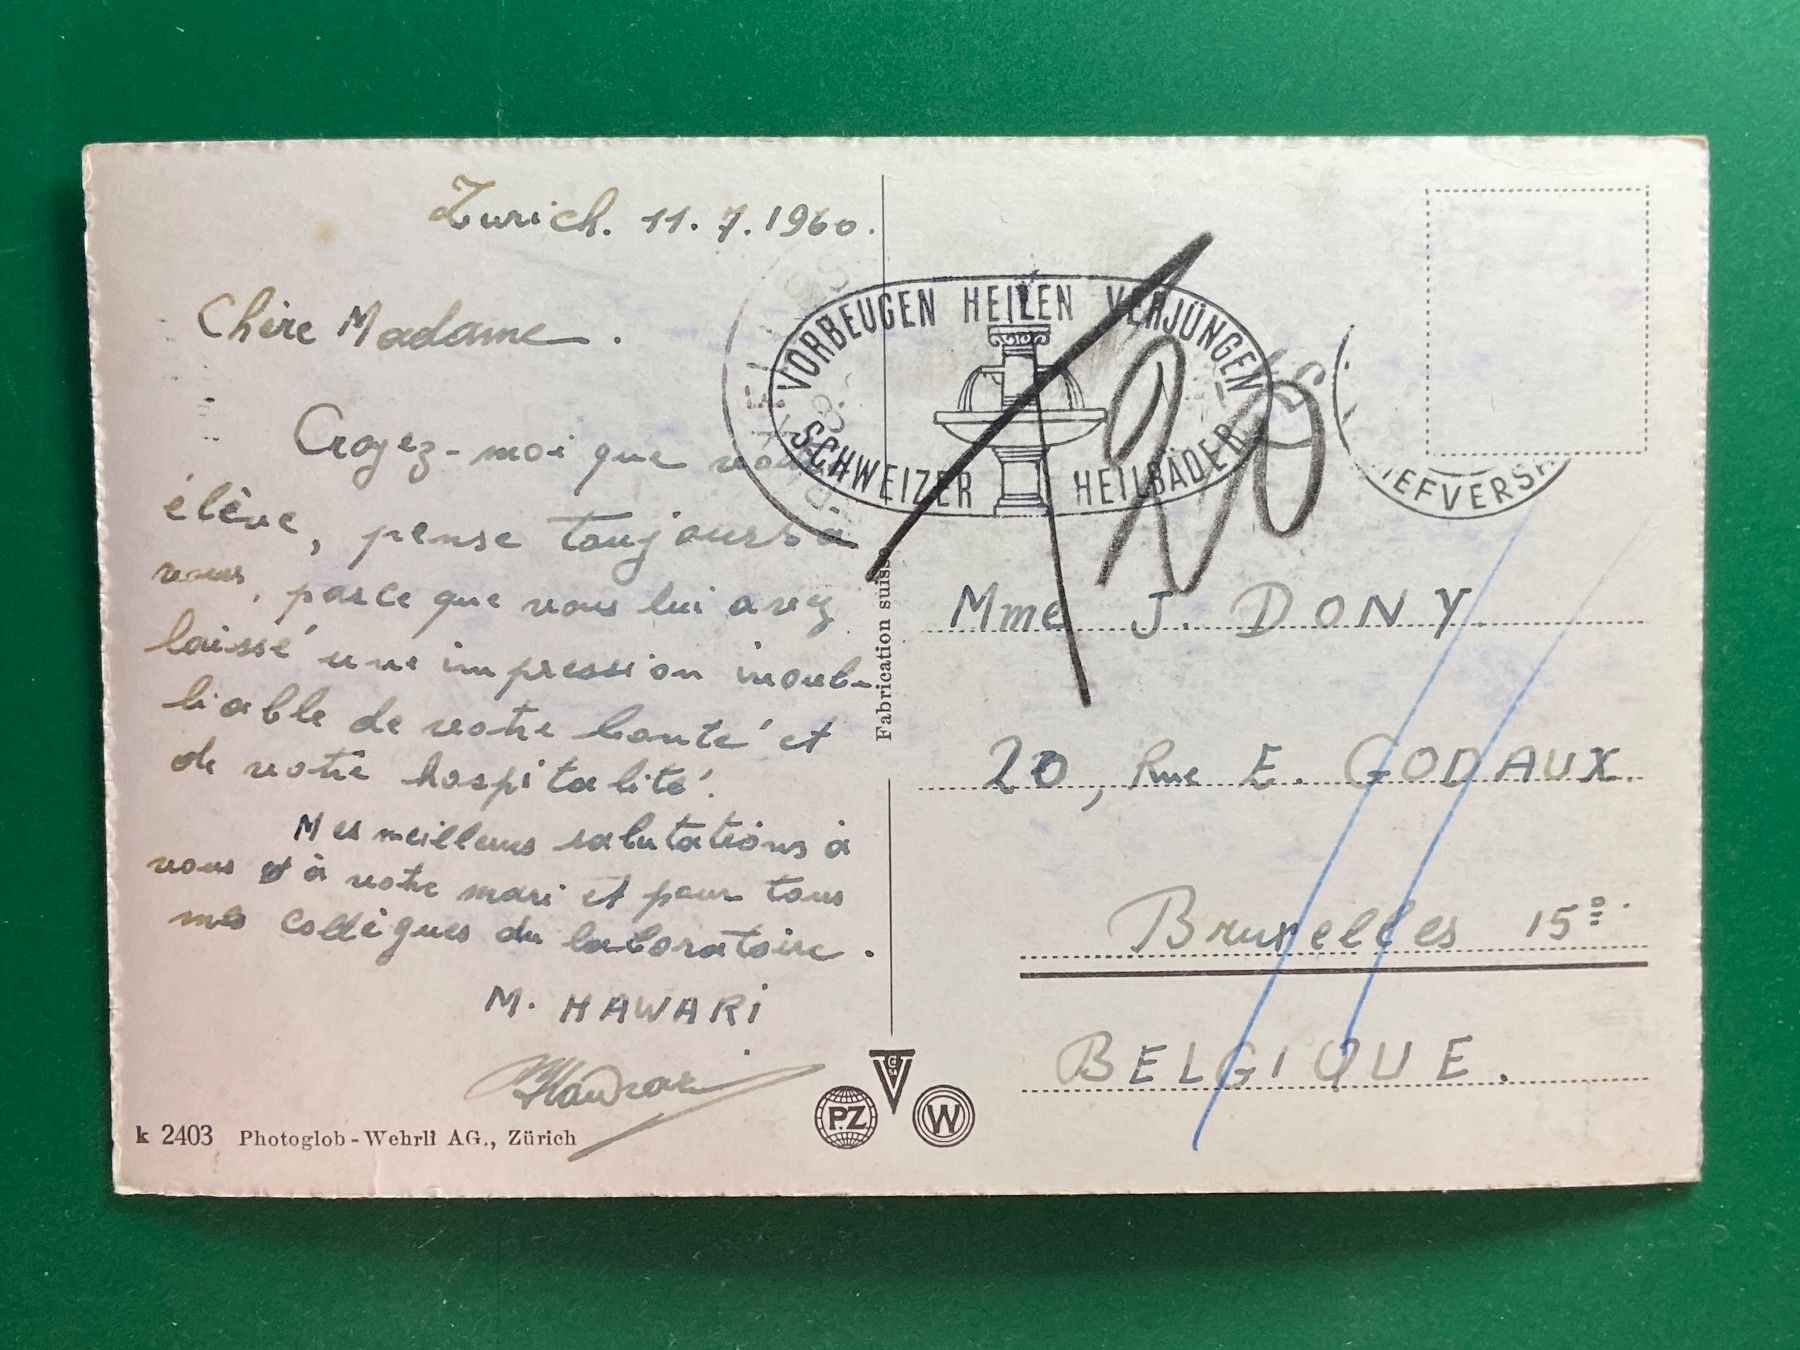 Zurich. 11. 7. 1960.
Chère Madame.
Croyez-moi que votre
élève, pense toujours à
vous, parce que vous lui avez
laissé une impression inoub-
liable de votre bonté et
de votre hospitalité.
Mes meilleurs salutations à
vous et à votre mari et pour tous
mes collègues du laboratoire.
M. HAWARI
k 2403 Photoglob-Wehrli AG., Zürich
Fabrication suisse
PZ
W
VORBEUGEN HEILEN VERJÜNGEN
SCHWEIZER HEILBÄDER
IEFVERSA
Mme J. DONY.
20, Rue E. GODAUX.
Bruxelles 15
BELGIQUE.